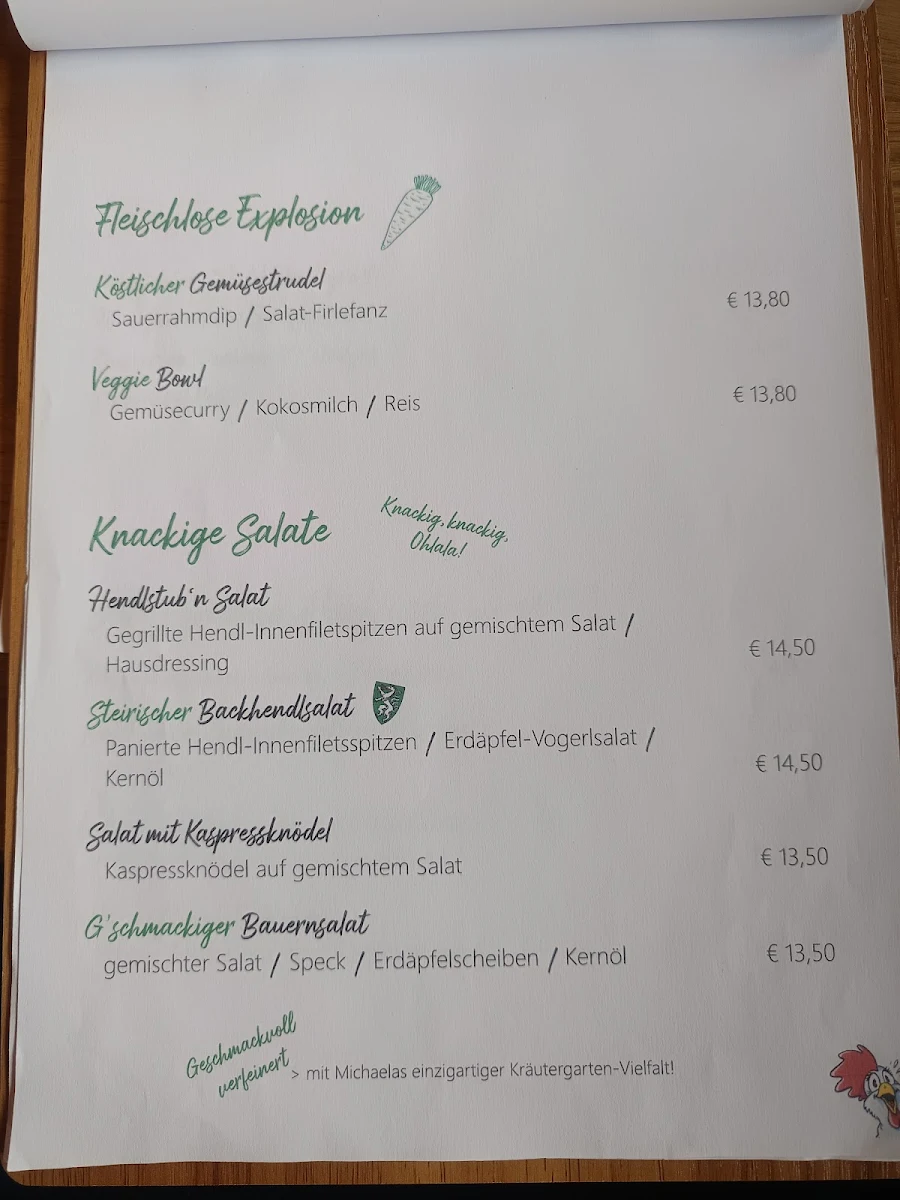 Fleischlose Explosion
Köstlicher Gemüsestrudel
Sauerrahmdip / Salat-Firlefanz
€ 13,80
Veggie Bowl
Gemüsecurry / Kokosmilch / Reis
€ 13,80
Knackige Salate
Knackig, knackig,
Ohlala!
Hendlstub'n Salat
Gegrillte Hendl-Innenfiletspitzen auf gemischtem Salat /
Hausdressing
€ 14,50
Steirischer Backhendlsalat
Panierte Hendl-Innenfiletsspitzen / Erdäpfel-Vogerlsalat /
Kernöl
€ 14,50
Salat mit Kaspressknödel
Kaspressknödel auf gemischtem Salat
€ 13,50
G'schmackiger Bauernsalat
gemischter Salat / Speck / Erdäpfelscheiben / Kernöl
€ 13,50
Geschmackvoll
verfeinert
> mit Michaelas einzigartiger Kräutergarten-Vielfalt!